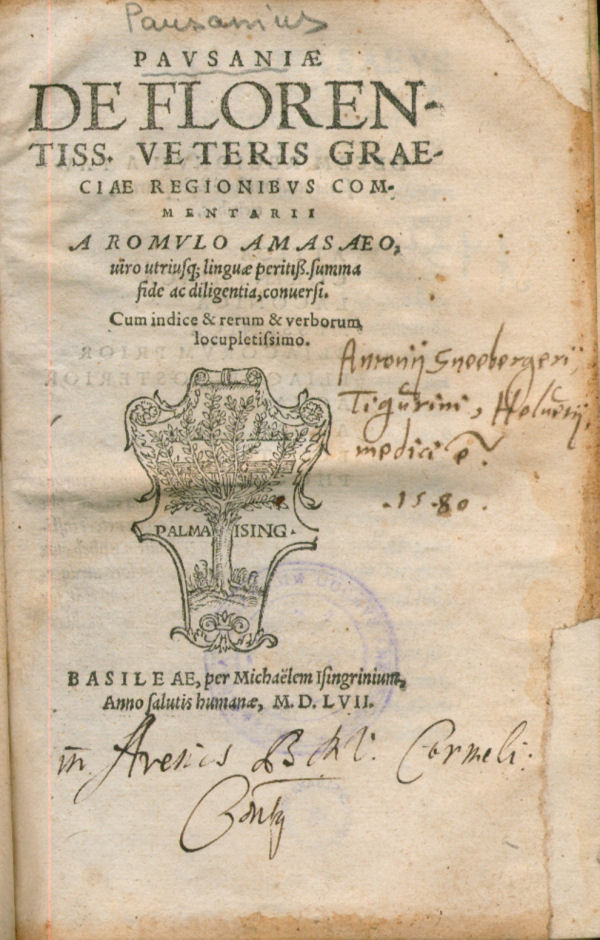 Pausanius
PAVSANIÆ
DE FLOREN-
TISS. VETERIS GRAE-
CIAE REGIONIBVS COM-
MENTARII
A ROMVLO AMASAEO,
uiro utriusq; linguæ peritiß. summa
fide ac diligentia, conuersi.
Cum indice & rerum & verborum
locupletissimo.
Antonij Sneebergeri,
Tigurini, Heluetij,
medici
.1580.
PALMA ISING.
BASILEAE, per Michaëlem Isingrinium,
Anno salutis humanæ, M. D. LVII.
in
Carmeli.